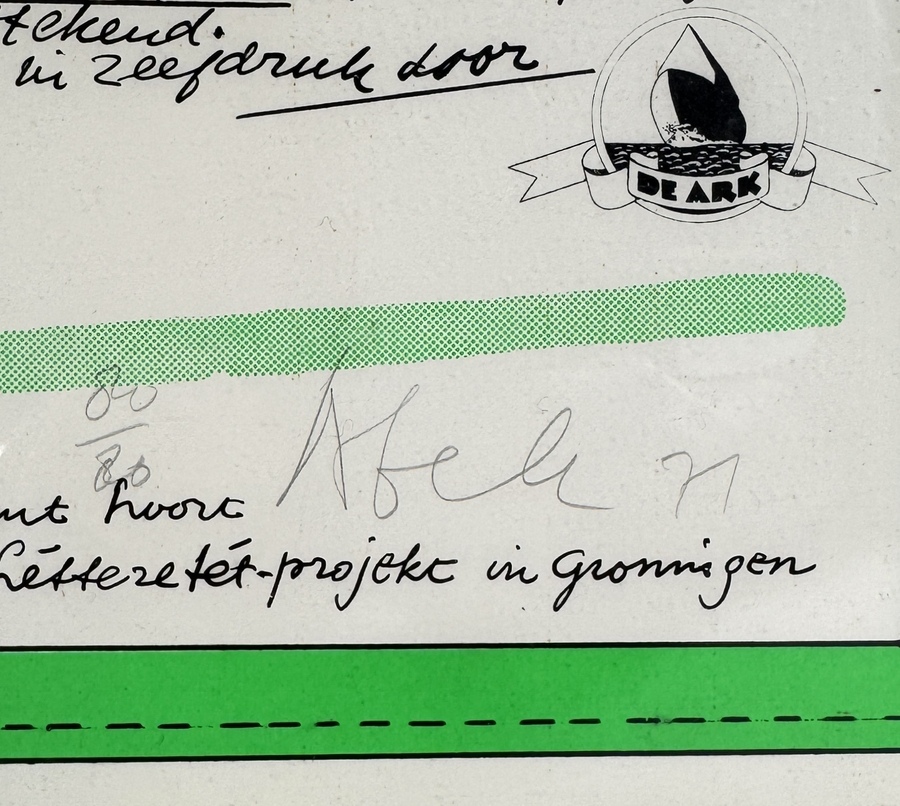 tekend.
in zeefdruk door
DE ARK
80
80
Abel 71
hoort
Létteretét-projekt in Groningen